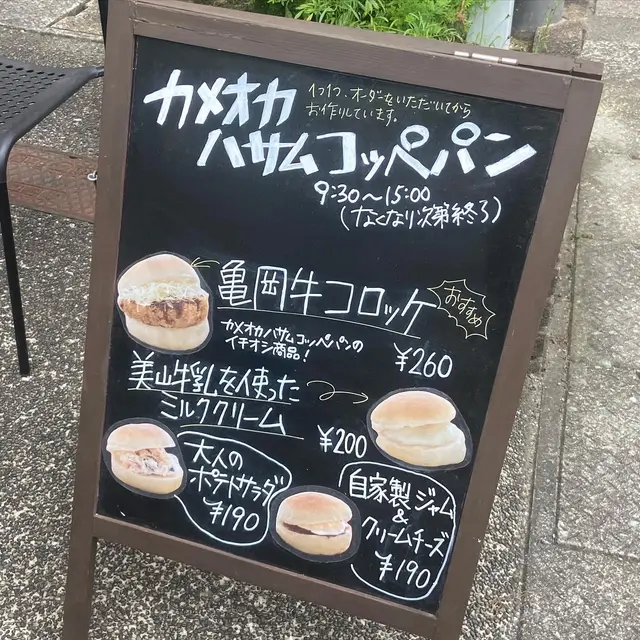 カメオカ
ハサムコッペパン
1つ1つ、オーダーをいただいてから
お作りしています。
9:30〜15:00
(なくなり次第終了)
亀岡牛コロッケ
おすすめ
カメオカハサムコッペパンの
イチオシ商品!
¥260
美山牛乳を使った
ミルククリーム
¥200
大人の
ポテトサラダ
¥190
自家製ジャム
&
クリームチーズ
¥190